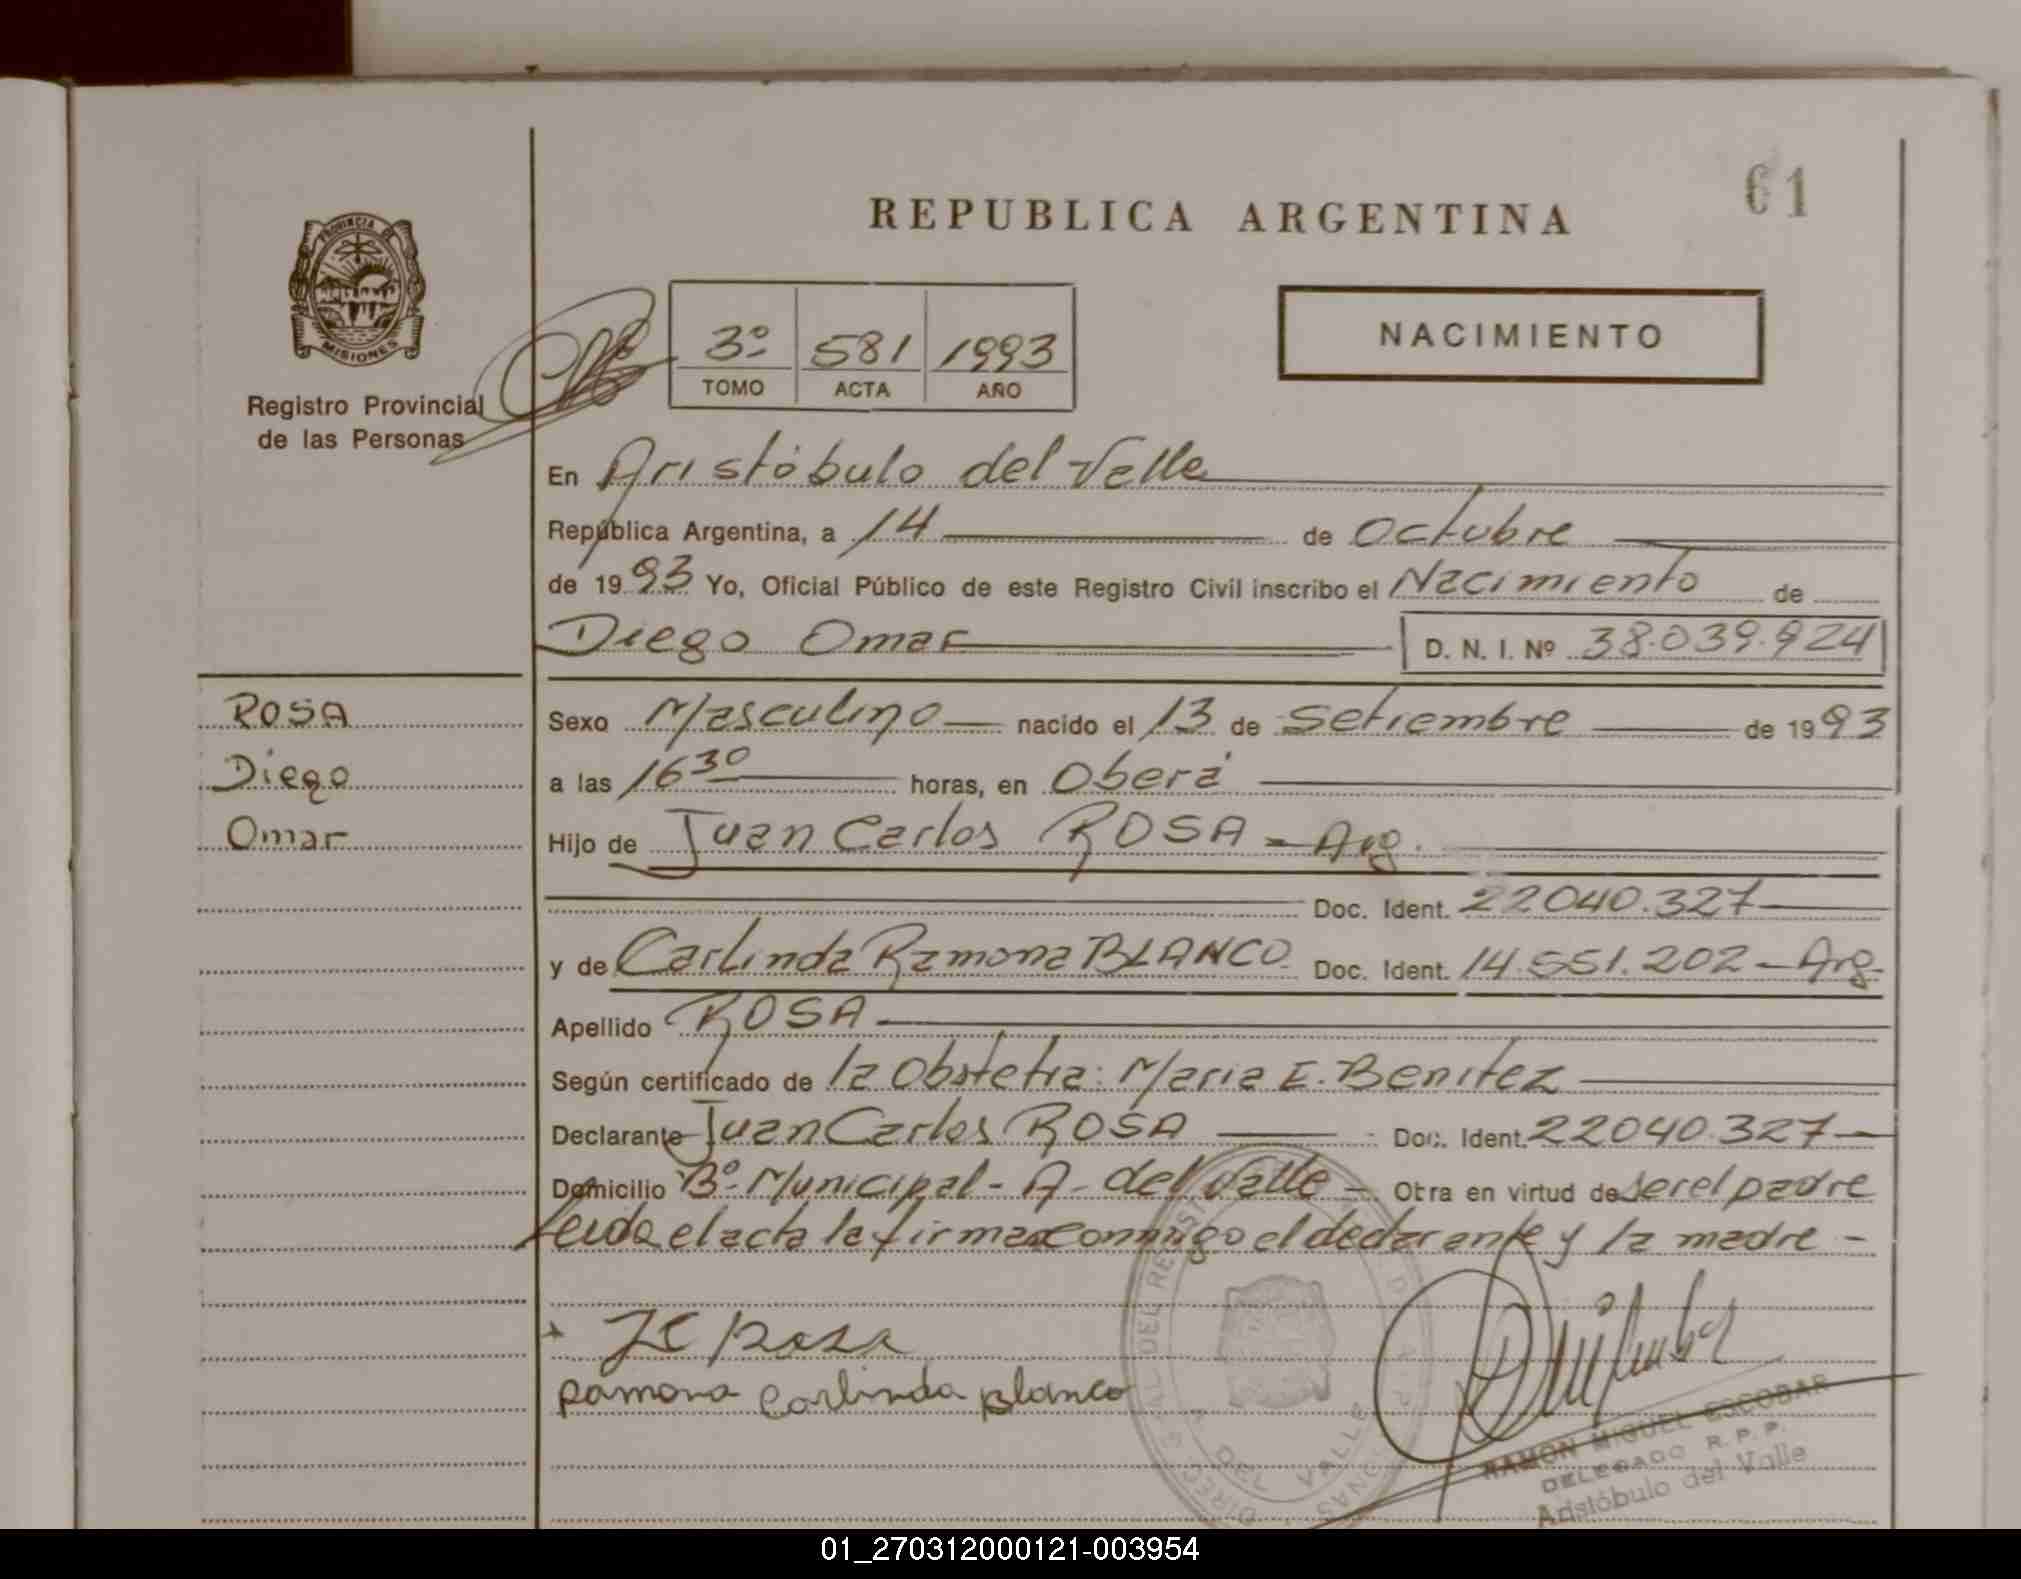 61
REPUBLICA ARGENTINA
PROVINCIA DE
MISIONES
Registro Provincial
de las Personas
3º 581 1993
TOMO ACTA AÑO
NACIMIENTO
En Aristóbulo del Valle
República Argentina, a 14 de Octubre
de 1993 Yo, Oficial Público de este Registro Civil inscribo el Nacimiento de
Diego Omar D. N. I. Nº 38.039.924
ROSA
Diego
Omar
Sexo Masculino nacido el 13 de Setiembre de 1993
a las 16 30 horas, en Oberá
Hijo de Juan Carlos ROSA = Arg.
Doc. Ident. 22040.327
y de Carlinda Ramona BLANCO Doc. Ident. 14.551.202 - Arg
Apellido ROSA
Según certificado de la Obstetra: Maria E. Benitez
Declarante Juan Carlos ROSA Doc. Ident. 22040.327
Domicilio Bº Municipal - A. del Valle - Obra en virtud de ser el padre
Leida el acta la firman conmigo el declarante y la madre -
JC Rosa
Ramona Carlinda Blanco
DEL VALLE
RAMON MIGUEL ESCOBAR
DELEGADO R. P. P.
Aristóbulo del Valle
01_270312000121-003954